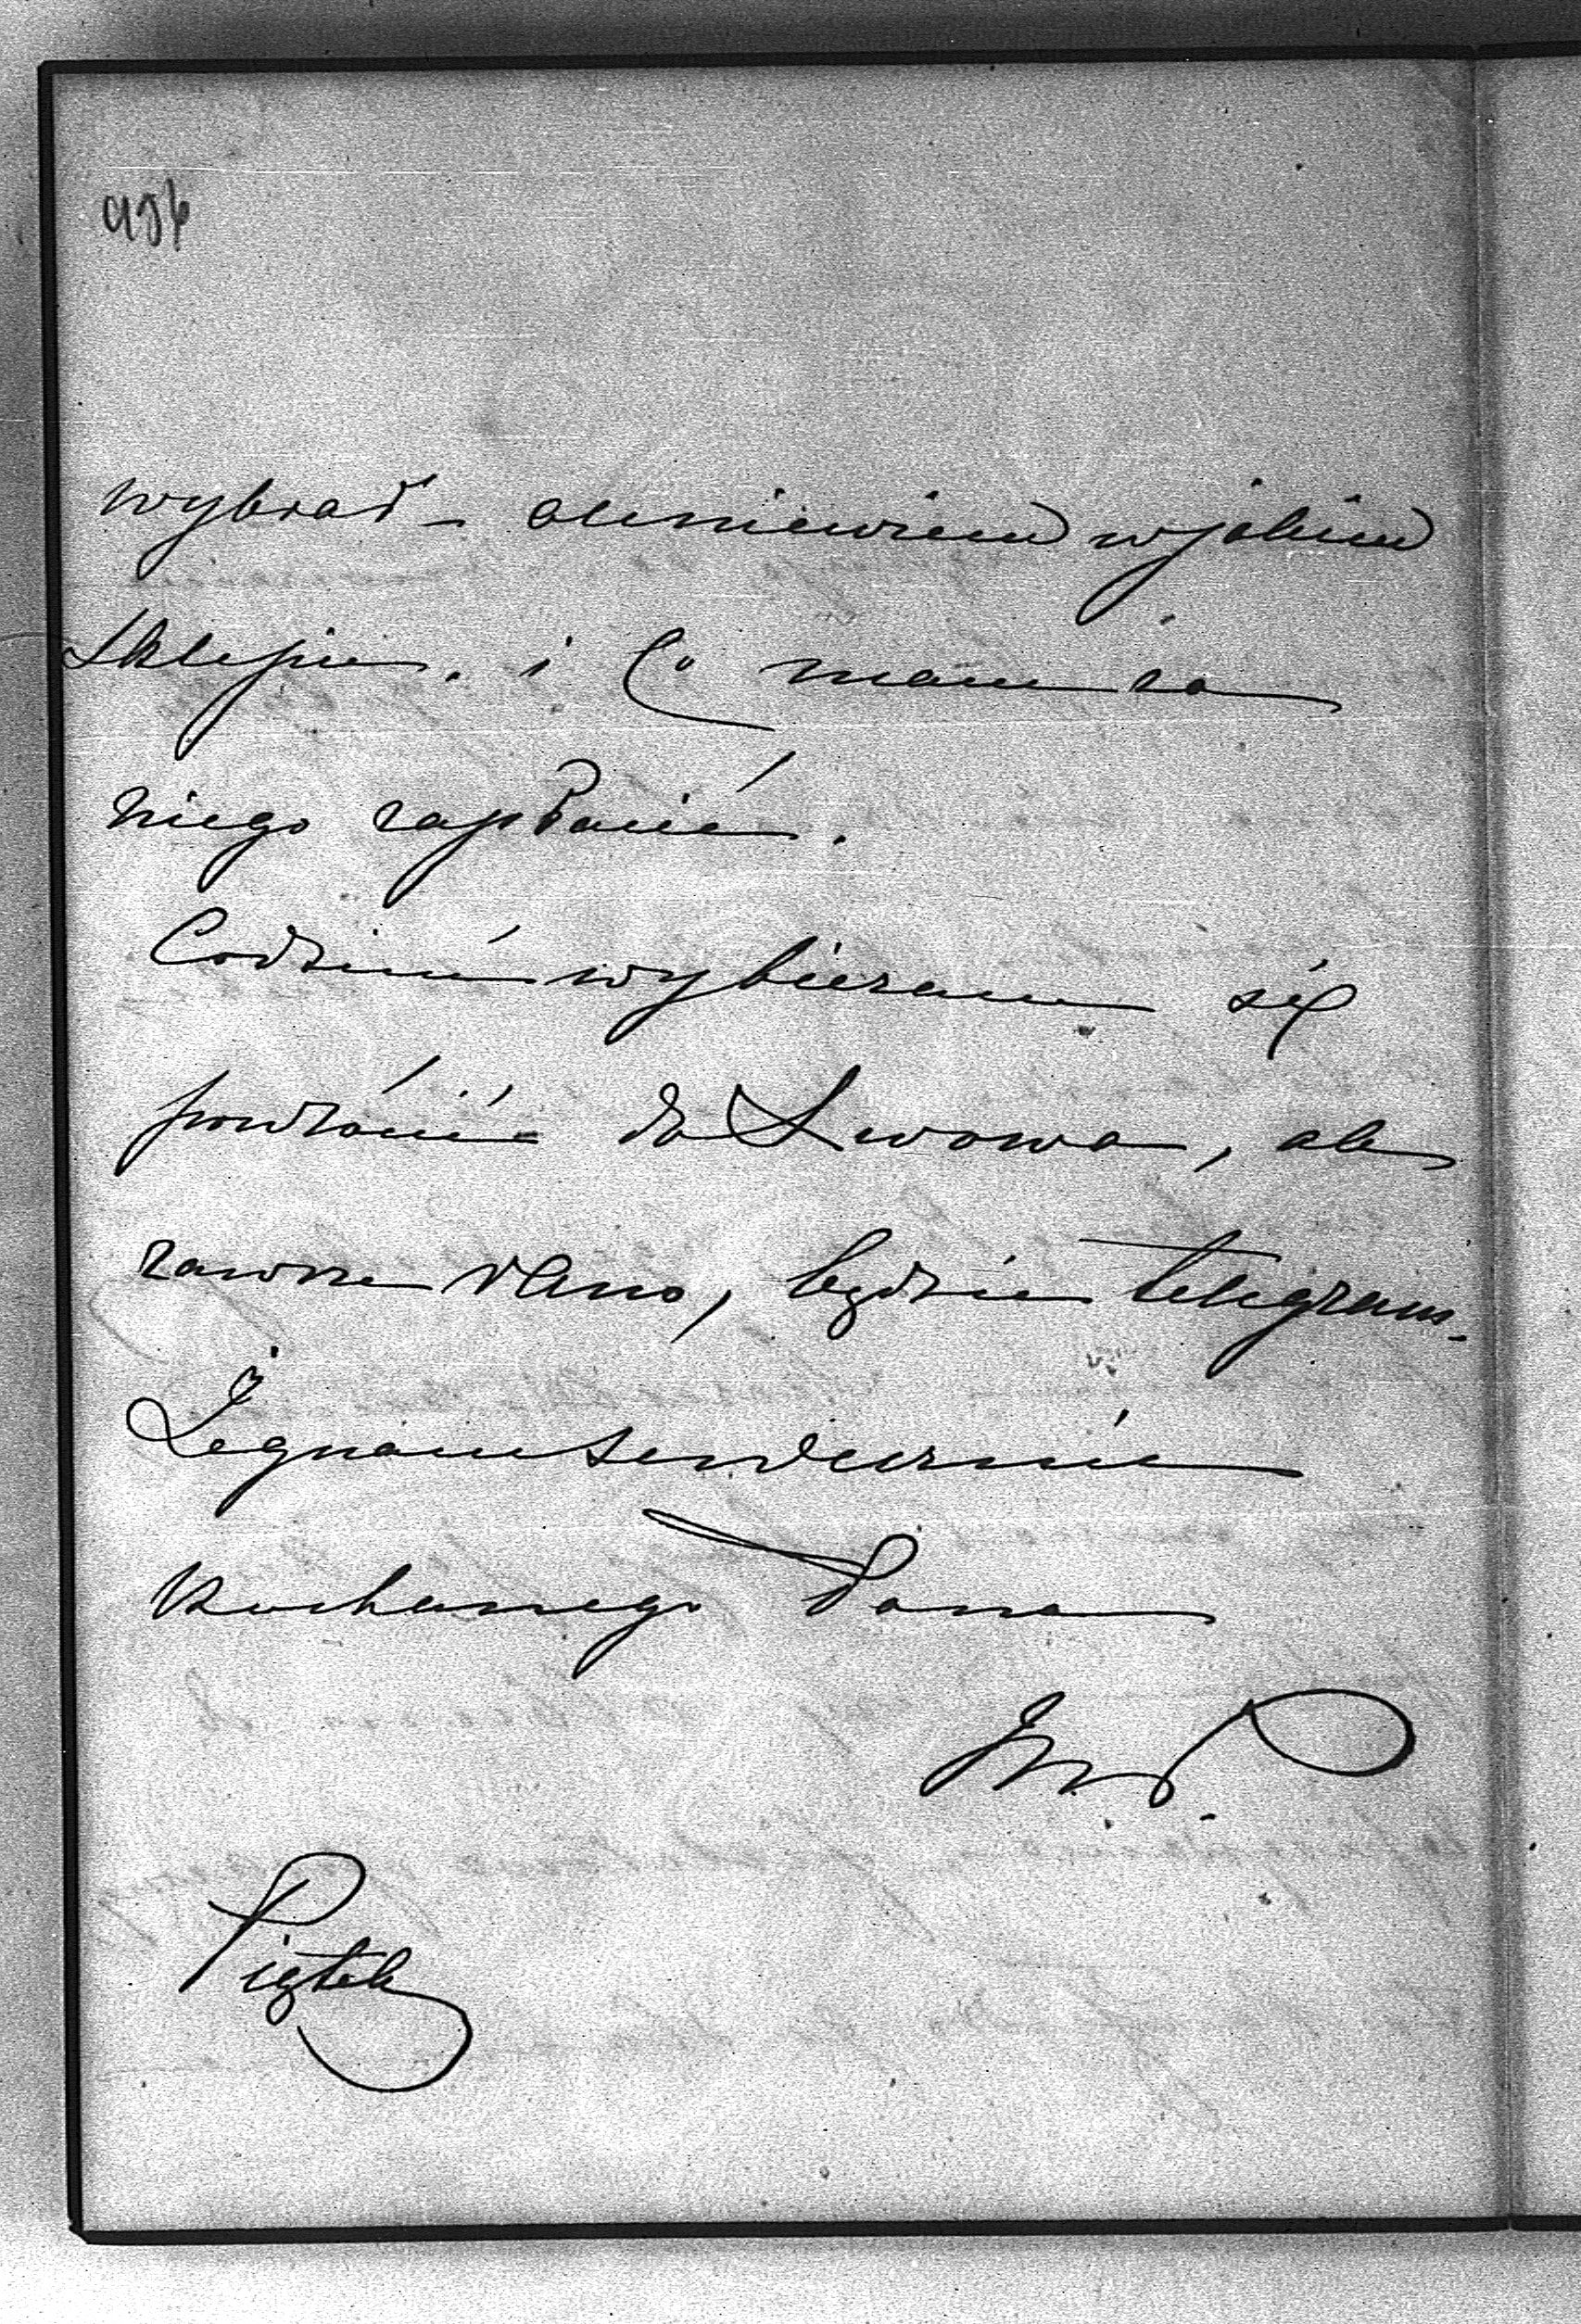 986
wybrać – ale niewiem w jakim
sklepie. i Co mam za
niego zapłacić.
Codzień wybieram się
powrócić do Lwowa, ale
zawsze
będzie telegram.
Żegnam serdecznie
Kochanego Pana
Piątek